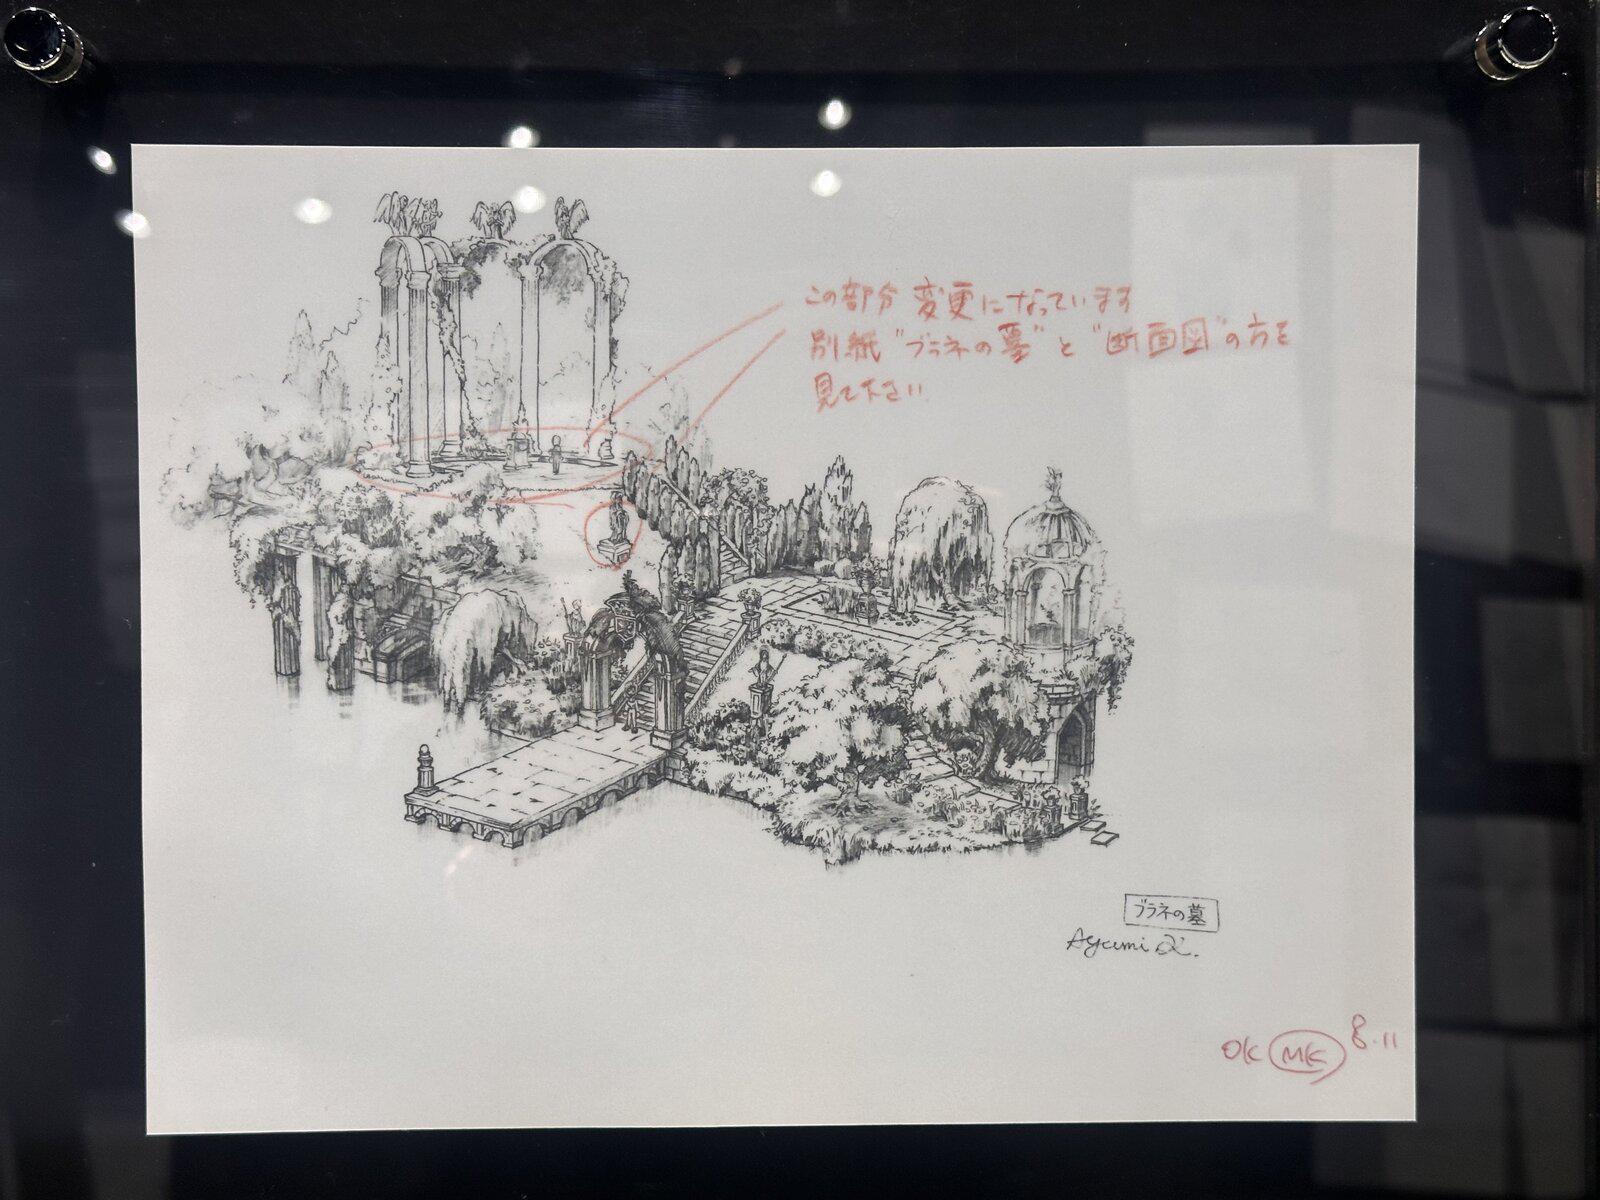 この部分 変更になっています
別紙"ブラネの墓"と"断面図"の方を
見て下さい
ブラネの墓
Ayumi
OK MK 8.11